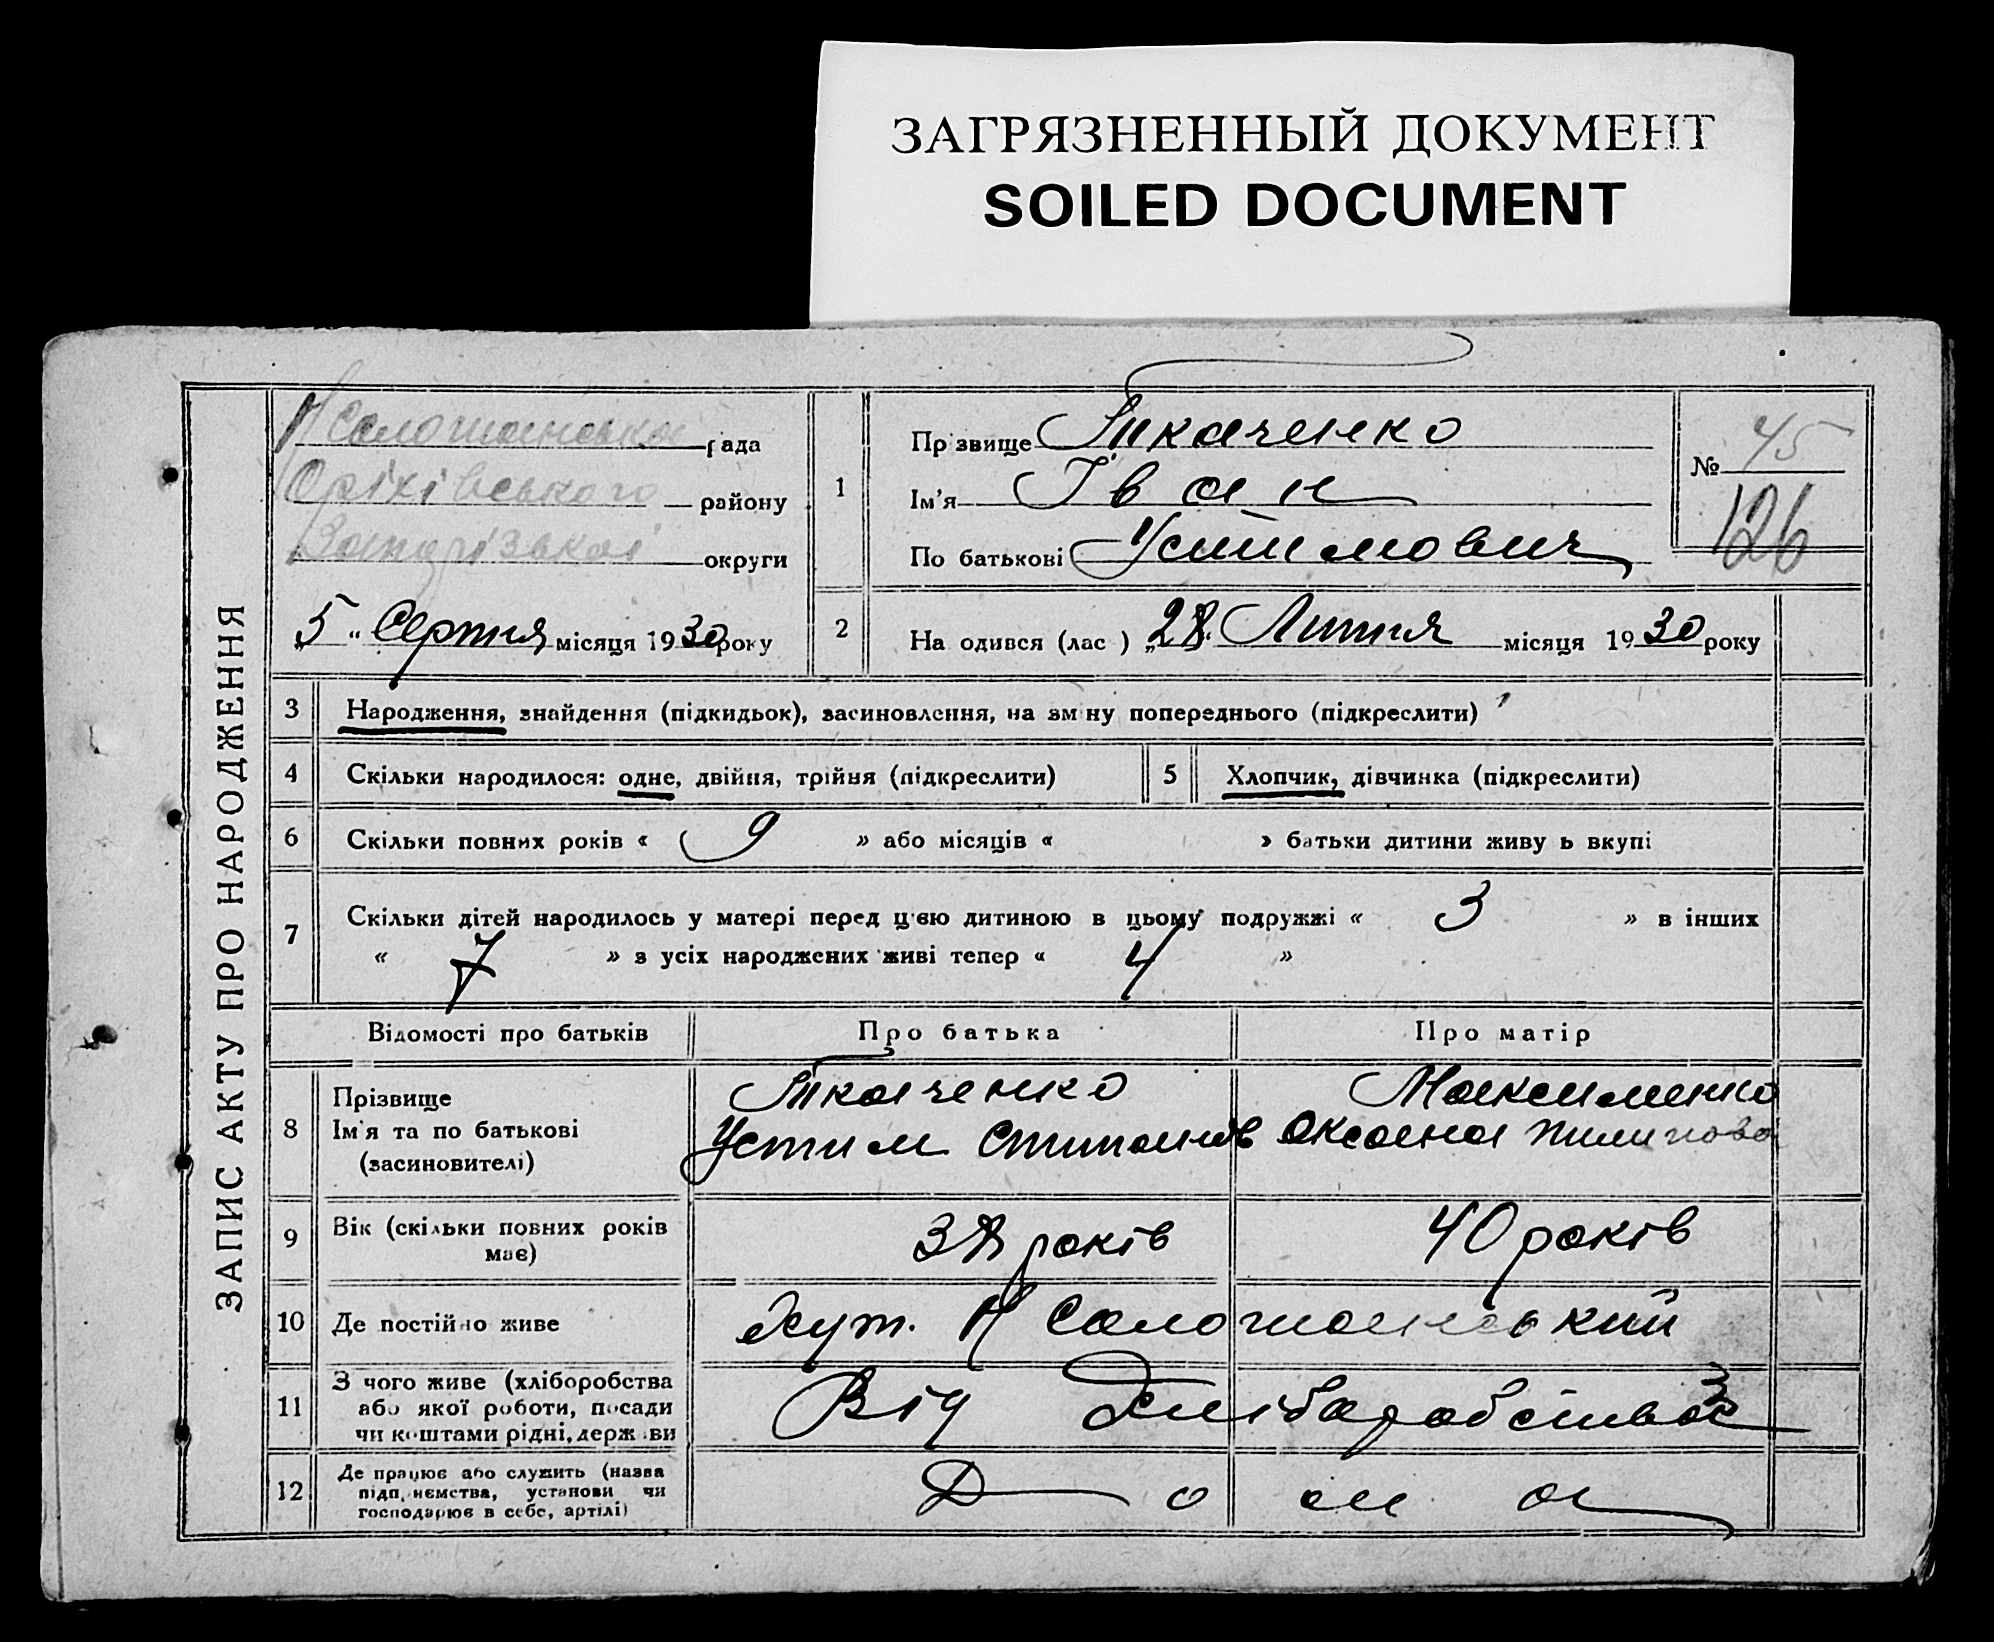 ЗАГРЯЗНЕННЫЙ ДОКУМЕНТ
SOILED DOCUMENT
ЗАПИС АКТУ ПРО НАРОДЖЕННЯ
рада
Оріхівського району
Запорізької округи
5 " Серпня місяця 1930 року
1
Прізвище Ткаченко
Ім'я Іван
По батькові Устимович
№ 45
126
2
На одився (лас ) „28" Липня місяця 1930 року
3 Народження, знайдення (підкидьок), засиновлення, на зміну попереднього (підкреслити)
4 Скільки народилося: одне, двійня, трійня (підкреслити)
5 Хлопчик, дівчинка (підкреслити)
6 Скільки повних років « 9 » або місяців « » батьки дитини живу ь вкупі
7 Скільки дітей народилось у матері перед цією дитиною в цьому подружжі « 3 » в інших
« 7 » з усіх народжених живі тепер « 4 »
Відомості про батьків Про батька Про матір
8 Прізвище
Ім'я та по батькові
(засиновителі)
Ткаченко
Устим
Максименко
Оксана Пилипова
9 Вік (скільки повних років
має)
38 років
40 років
10 Де постійно живе
Хут. Н Солошанський
11 З чого живе (хліборобства
або якої роботи, посади
чи коштами рідні, держ ви
Від Хліборобства
12 Де працює або служить (назва
підп, иємства, установи чи
господарює в себе, артілі)
Дома